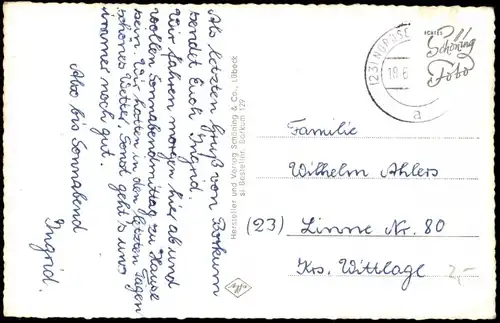 Als letzten Gruß von Borkum
sendet Euch Ingrid.
Wir fahren morgen hier ab und
wollen Sonnabendmittag zu Hause
sein. Wir hatten in den letzten Tagen
schönes Wetter. Sonst geht's uns
immer noch gut.
Also bis Sonnabend
Ingrid.
Hersteller und Verlag Schöning & Co., Lübeck
si Bestellnr. Borkum 129
ECHTES
Schöning
Foto
(23) NORDSE
18.6
a
Familie
Wilhelm Ahlers
(23) Linne Nr. 80
Krs. Wittlage
2,-